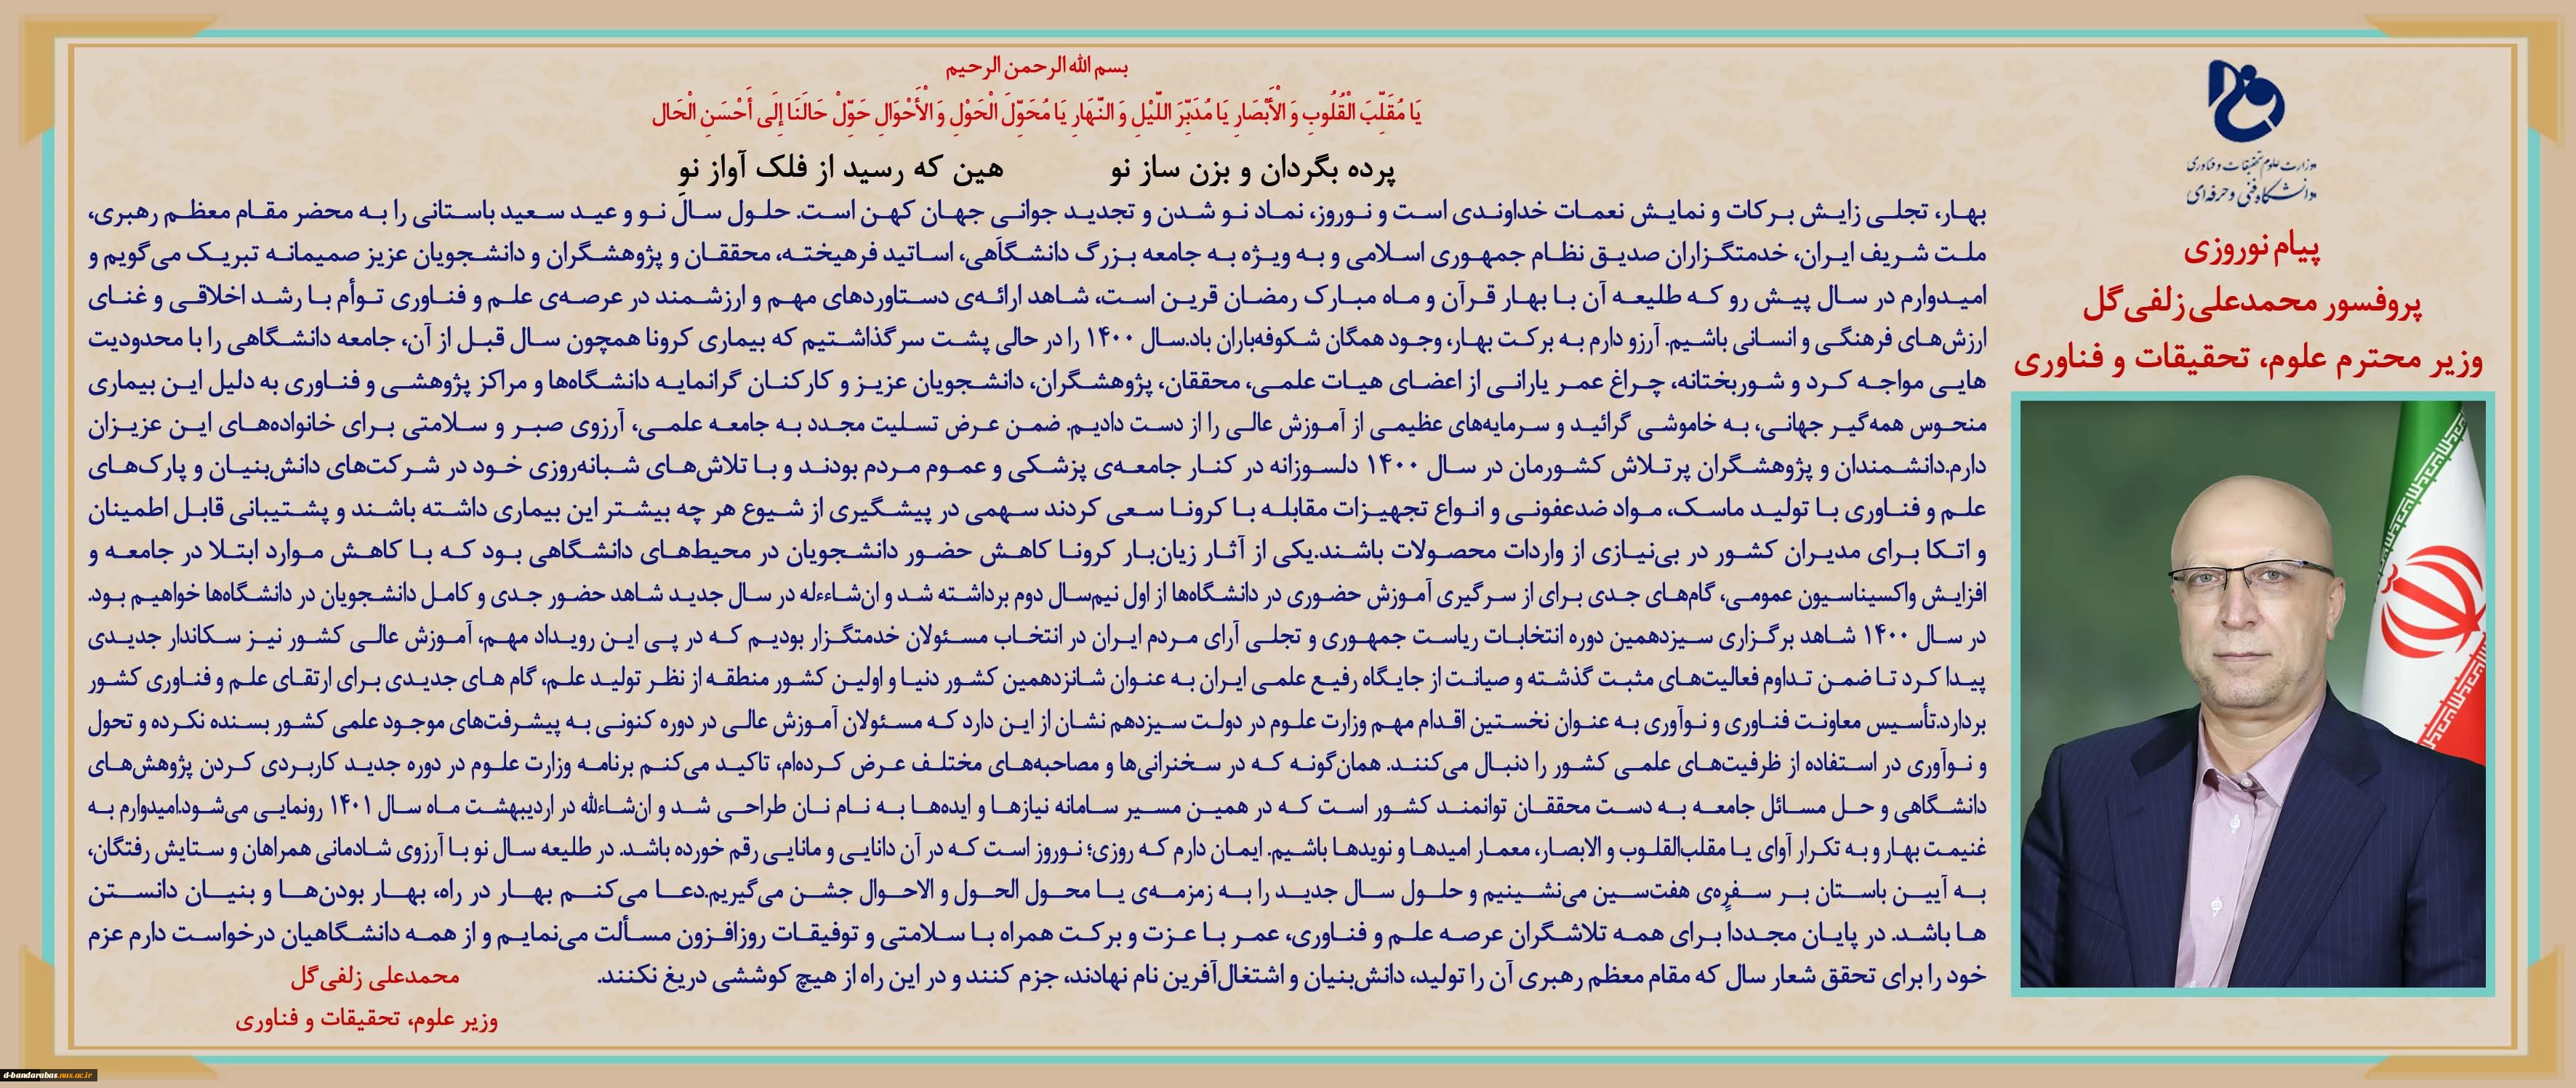 وزارت علوم تحقیقات و فناوری
دانشگاه فنی و حرفه‌ای
پیام نوروزی
پروفسور محمدعلی زلفی‌گل
وزیر محترم علوم، تحقیقات و فناوری
بسم الله الرحمن الرحیم
يَا مُقَلِّبَ الْقُلُوبِ وَ الْأَبْصَارِ يَا مُدَبِّرَ اللَّيْلِ وَ النَّهَارِ يَا مُحَوِّلَ الْحَوْلِ وَ الْأَحْوَالِ حَوِّلْ حَالَنَا إِلَى أَحْسَنِ الْحَال
پرده بگردان و بزن ساز نو هین که رسید از فلک آواز نو
بهار، تجلی زایش برکات و نمایش نعمات خداوندی است و نوروز، نماد نو شدن و تجدید جوانی جهان کهن است. حلول سال نو و عید سعید باستانی را به محضر مقام معظم رهبری،
ملت شریف ایران، خدمتگزاران صدیق نظام جمهوری اسلامی و به ویژه به جامعه بزرگ دانشگاهی، اساتید فرهیخته، محققان و پژوهشگران و دانشجویان عزیز صمیمانه تبریک می‌گویم و
امیدوارم در سال پیش رو که طلیعه آن با بهار قرآن و ماه مبارک رمضان قرین است، شاهد ارائه‌ی دستاوردهای مهم و ارزشمند در عرصه‌ی علم و فناوری توأم با رشد اخلاقی و غنای
ارزش‌های فرهنگی و انسانی باشیم. آرزو دارم به برکت بهار، وجود همگان شکوفه‌باران باد.سال ۱۴۰۰ را در حالی پشت سر گذاشتیم که بیماری کرونا همچون سال قبل از آن، جامعه دانشگاهی را با محدودیت
هایی مواجه کرد و شوربختانه، چراغ عمر یارانی از اعضای هیات علمی، محققان، پژوهشگران، دانشجویان عزیز و کارکنان گرانمایه دانشگاه‌ها و مراکز پژوهشی و فناوری به دلیل این بیماری
منحوس همه‌گیر جهانی، به خاموشی گرائید و سرمایه‌های عظیمی از آموزش عالی را از دست دادیم. ضمن عرض تسلیت مجدد به جامعه علمی، آرزوی صبر و سلامتی برای خانواده‌های این عزیزان
دارم.دانشمندان و پژوهشگران پرتلاش کشورمان در سال ۱۴۰۰ دلسوزانه در کنار جامعه‌ی پزشکی و عموم مردم بودند و با تلاش‌های شبانه‌روزی خود در شرکت‌های دانش‌بنیان و پارک‌های
علم و فناوری با تولید ماسک، مواد ضدعفونی و انواع تجهیزات مقابله با کرونا سعی کردند سهمی در پیشگیری از شیوع هر چه بیشتر این بیماری داشته باشند و پشتیبانی قابل اطمینان
و اتکا برای مدیران کشور در بی‌نیازی از واردات محصولات باشند.یکی از آثار زیان‌بار کرونا کاهش حضور دانشجویان در محیط‌های دانشگاهی بود که با کاهش موارد ابتلا در جامعه و
افزایش واکسیناسیون عمومی، گام‌های جدی برای از سرگیری آموزش حضوری در دانشگاه‌ها از اول نیم‌سال دوم برداشته شد و ان‌شاءءله در سال جدید شاهد حضور جدی و کامل دانشجویان در دانشگاه‌ها خواهیم بود.
در سال ۱۴۰۰ شاهد برگزاری سیزدهمین دوره انتخابات ریاست جمهوری و تجلی آرای مردم ایران در انتخاب مسئولان خدمتگزار بودیم که در پی این رویداد مهم، آموزش عالی کشور نیز سکاندار جدیدی
پیدا کرد تا ضمن تداوم فعالیت‌های مثبت گذشته و صیانت از جایگاه رفیع علمی ایران به عنوان شانزدهمین کشور دنیا و اولین کشور منطقه از نظر تولید علم، گام های جدیدی برای ارتقای علم و فناوری کشور
بردارد.تأسیس معاونت فناوری و نوآوری به عنوان نخستین اقدام مهم وزارت علوم در دولت سیزدهم نشان از این دارد که مسئولان آموزش عالی در دوره کنونی به پیشرفت‌های موجود علمی کشور بسنده نکرده و تحول
و نوآوری در استفاده از ظرفیت‌های علمی کشور را دنبال می‌کنند. همان‌گونه که در سخنرانی‌ها و مصاحبه‌های مختلف عرض کرده‌ام، تاکید می‌کنم برنامه وزارت علوم در دوره جدید کاربردی کردن پژوهش‌های
دانشگاهی و حل مسائل جامعه به دست محققان توانمند کشور است که در همین مسیر سامانه نیازها و ایده‌ها به نام نان طراحی شد و ان‌شاءالله در اردیبهشت ماه سال ۱۴۰۱ رونمایی می‌شود.امیدوارم به
غنیمت بهار و به تکرار آوای یا مقلب‌القلوب و الابصار، معمار امیدها و نویدها باشیم. ایمان دارم که روزی؛ نوروز است که در آن دانایی و مانایی رقم خورده باشد. در طلیعه سال نو با آرزوی شادمانی همراهان و ستایش رفتگان،
به آیین باستان بر سفره‌ی هفت‌سین می‌نشینیم و حلول سال جدید را به زمزمه‌ی یا محول الحول و الاحوال جشن می‌گیریم.دعا می‌کنم بهار در راه، بهار بودن‌ها و بنیان دانستن
ها باشد. در پایان مجددا برای همه تلاشگران عرصه علم و فناوری، عمر با عزت و برکت همراه با سلامتی و توفیقات روزافزون مسألت می‌نمایم و از همه دانشگاهیان درخواست دارم عزم
خود را برای تحقق شعار سال که مقام معظم رهبری آن را تولید، دانش‌بنیان و اشتغال‌آفرین نام نهادند، جزم کنند و در این راه از هیچ کوششی دریغ نکنند.
محمدعلی زلفی‌گل
وزیر علوم، تحقیقات و فناوری
d-bandarabas.nus.ac.ir